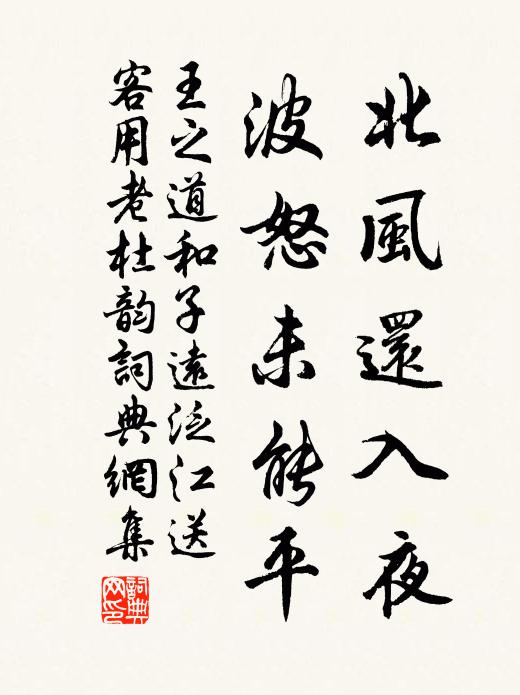 北風還入夜
波怒未能平
王之道和子遠泛江送
客用老杜韻詞典網集
詞典網印